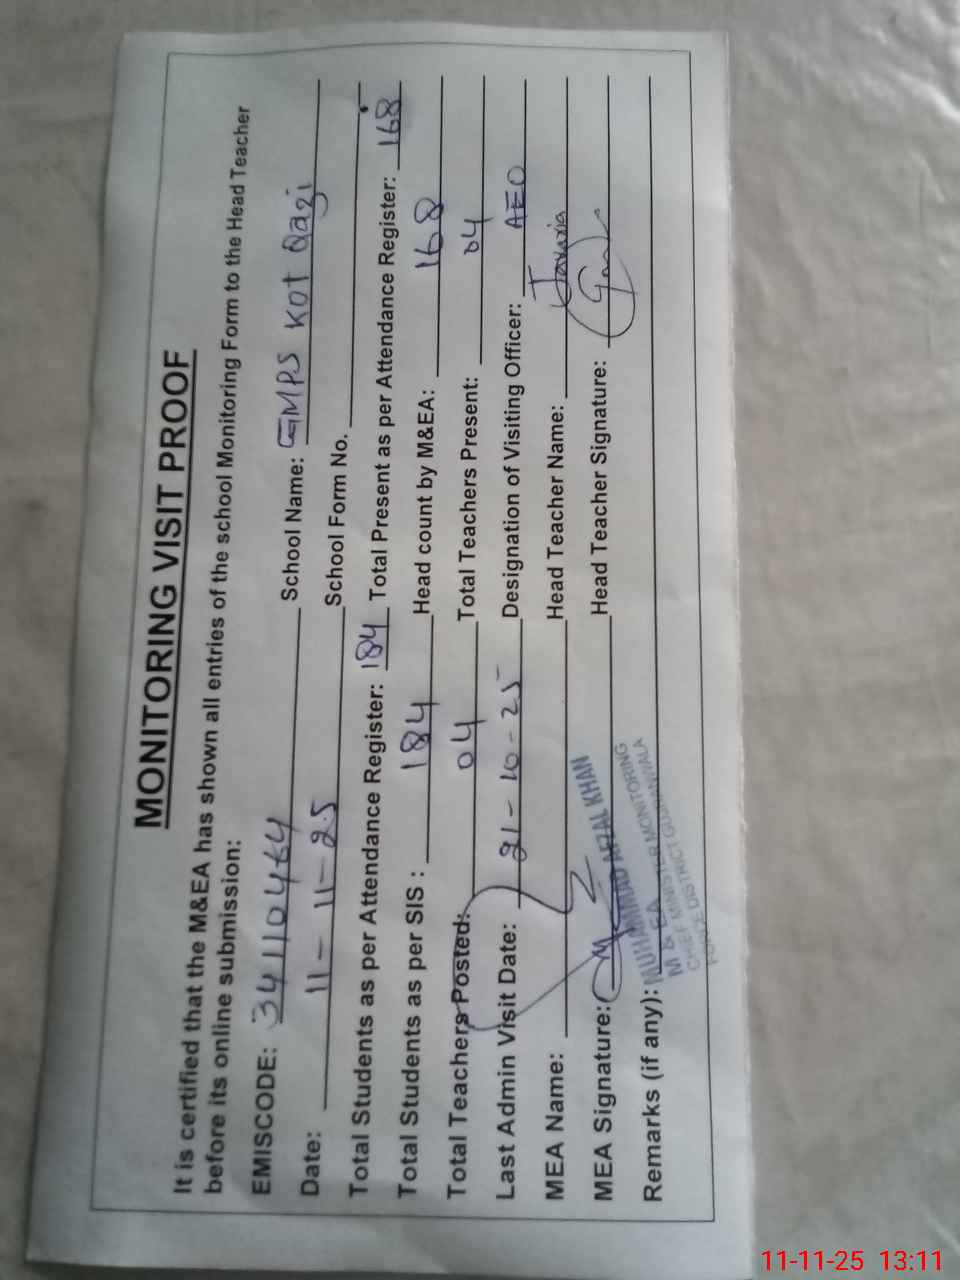 MONITORING VISIT PROOF
It is certified that the M&EA has shown all entries of the school Monitoring Form to the Head Teacher
before its online submission:
EMISCODE: 34110464 School Name: GMPS KOT Qazi
Date: 11-11-25 School Form No.
Total Students as per Attendance Register: 184 Total Present as per Attendance Register: 168
Total Students as per SIS: 184 Head count by M&EA: 168
Total Teachers Posted: 04 Total Teachers Present: 04
Last Admin Visit Date: 21-10-25 Designation of Visiting Officer: AEO
MEA Name: Head Teacher Name: Javaria
MEA Signature: Head Teacher Signature:
Remarks (if any):
MUHAMMAD AFZAL KHAN
M & EA
CHIEF MINISTER MONITORING
FORCE DISTRICT GUJRANWALA
11-11-25 13:11